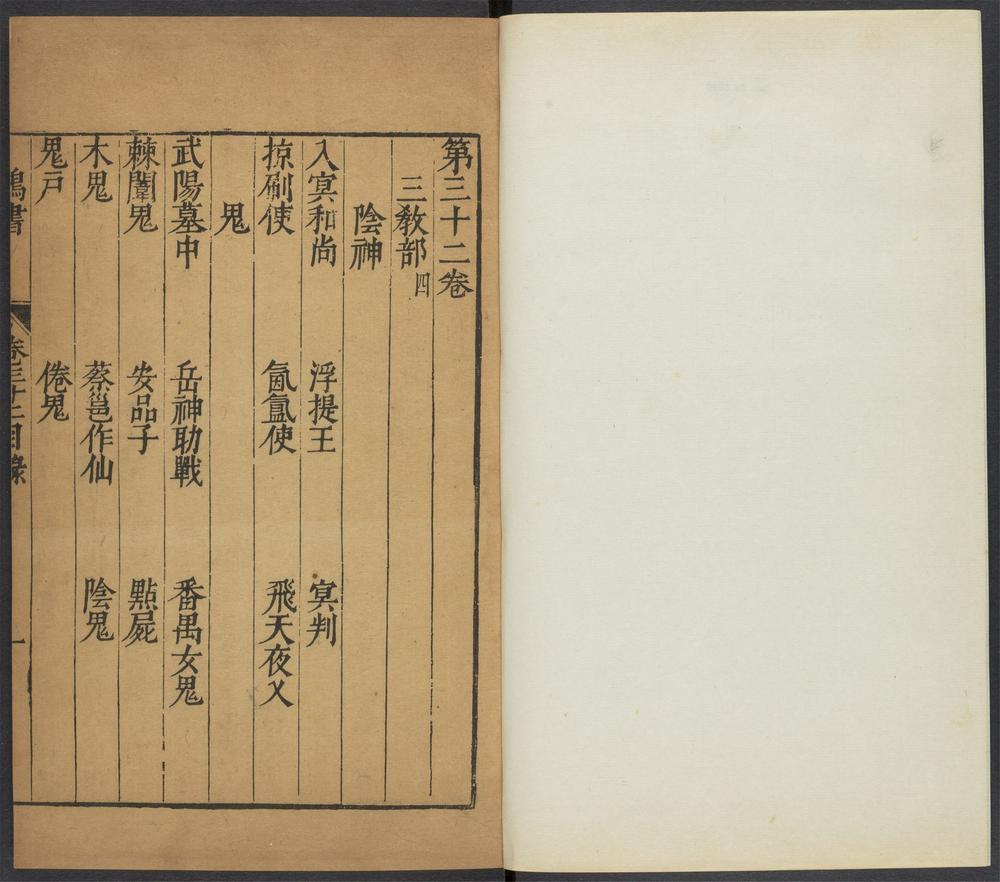 第三十二卷
三敎部四
陰神
入冥和尚 浮提王 冥判
掠刷使 氤氳使 飛天夜叉
鬼
武陽墓中 岳神助戰 番禺女鬼
棘闈鬼 安品子 點屍
木鬼 蔡邕作仙 陰鬼
鬼戸 倦鬼
鴻書 卷三十二目錄 一